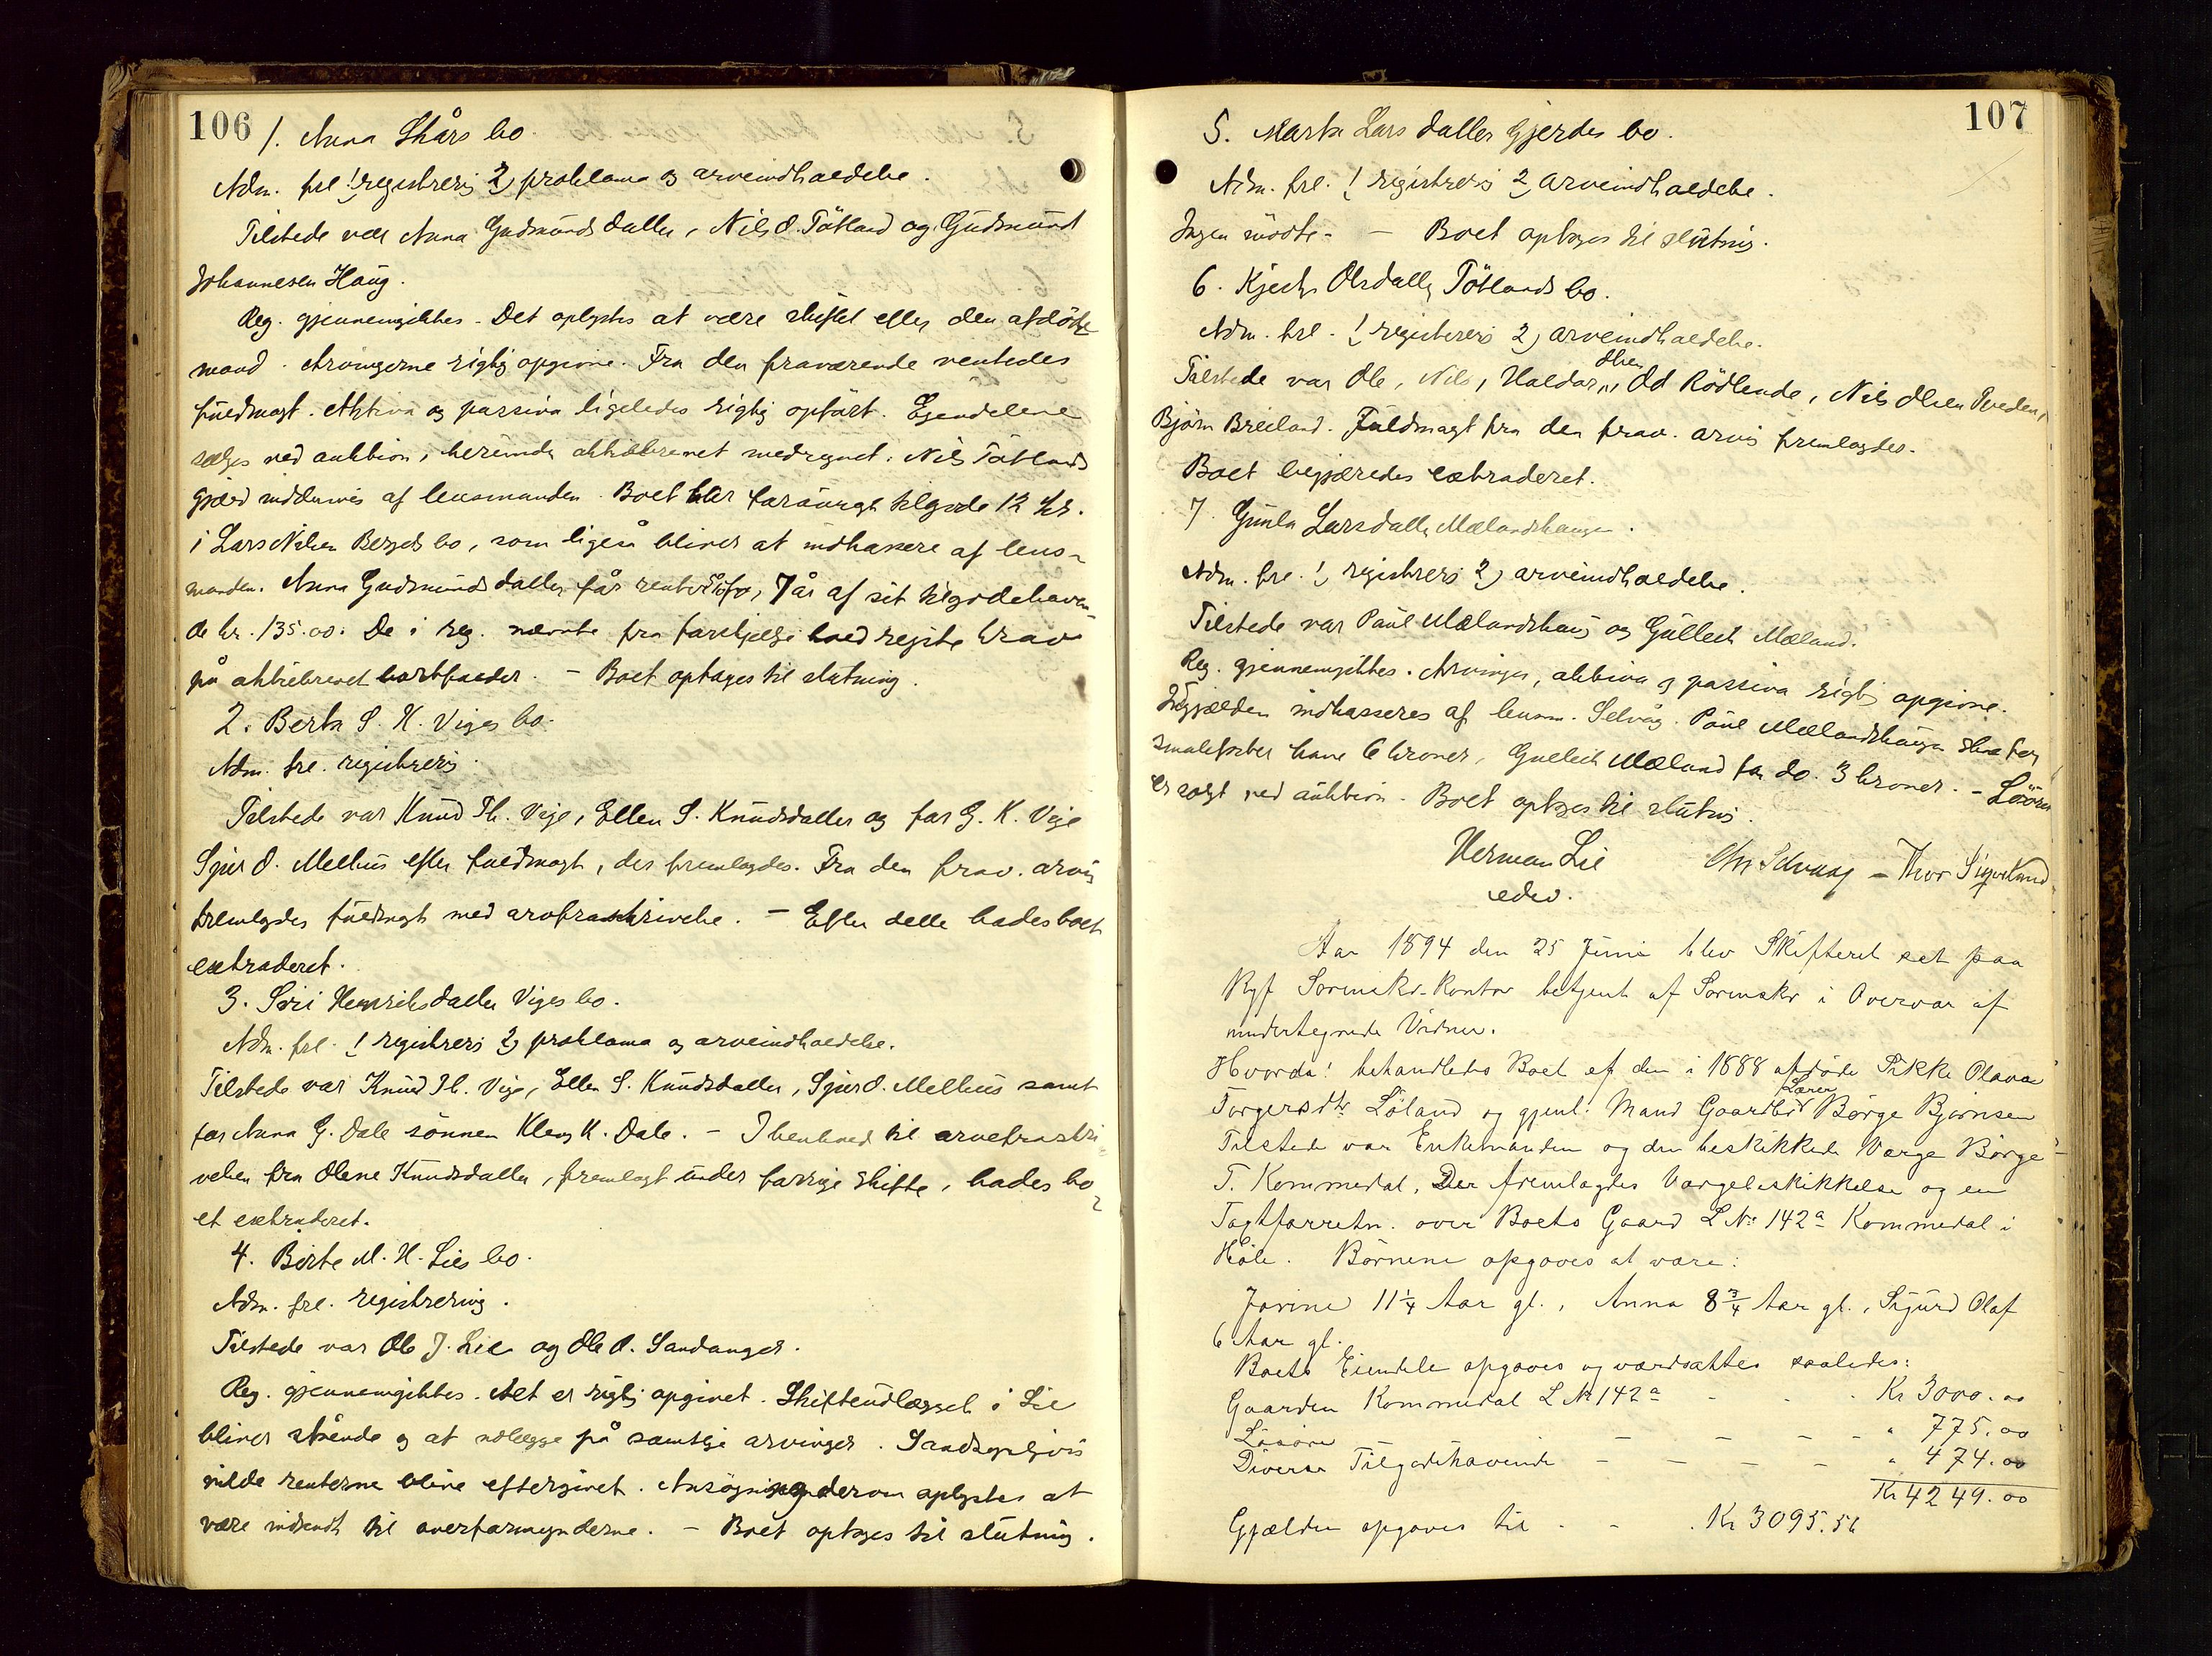 106
1. Anna Skårs bo.
Adm. frl. 1) registrering 2) proklama og arveindkaldelse.
Tilstede var Anna Gudmundsdatter, Nils O. Tötland og Gudmund
Johannesen Haug.
Reg. gjennemgikkes. Det oplystes at være skiftet efter den afdöde
mand. Arvingerne rigtig opgivne. Fra den fraværende ventedes
fuldmagt. Aktiva og passiva ligeledes rigtig opfört. Eiendelene
sælges ved auktion, herunder aktiebrevet medregnet. Nils Tötlands
gjæld inddrives af lensmanden. Boet har forövrigt tilgode 12 kr.
i Lars Nilsen Berges bo, som ligeså bliver at indkassere af lens-
manden. Anna Gudmundsdatter får renter 5 % for 7 år af sit tilgodehaven-
de kr. 135.00. De i reg. nævnte krav
på aktiebrevet bortfalder. - Boet optages til slutning.
2. Berta S. K. Viges bo.
Adm. frl. registrering.
Tilstede var Knud Th. Vige, Ellen S. Knudsdatter og for G. K. Vige
Sjur O. Melhus efter fuldmagt, der fremlagdes. Fra den frav. arving
fremlagdes fuldmagt med arvefraskrivelse. - Efter dette hades boet
extraderet.
3. Siri Henriksdatter Viges bo.
Adm. frl. 1) registrering 2) proklama og arveindkaldelse.
Tilstede var Knud Th. Vige, Ellen S. Knudsdatter, Sjur O. Melhus samt
for Anna G. Dale sönnen Klaus K. Dale. - I henhold til arvefraskri-
velsen fra Olene Knudsdatter, fremlagt under forrige skifte, hades bo-
et extraderet.
4. Birte M. H. Lies bo.
Adm. frl. registrering.
Tilstede var Ole J. Lie og Ole A. Sandanger.
Reg. gjennemgikkes. Alt er rigtig opgivet. Skifteudlægget i Lie
bliver stående og at udlægge på samtlige arvinger. Sandsynligvis
vilde renterne blive eftergivet. Ansøgning derom oplystes at
være indsendt til overformynderne. - Boet optages til slutning.
107
5. Marta Larsdatter Gjerdes bo.
Adm. frl. 1) registrering 2) arveindkaldelse.
Ingen mödte. - Boet optages til slutning.
6. Olsdatter Tötlands bo.
Adm. frl. 1) registrering 2) arveindkaldelse.
Olsen
Tilstede var Ole, Nils, Haldor, Od Rödlende, Nils Olsen
Björn Breiland. Fuldmagt fra den frav. arving fremlagdes.
Boet begjæredes extraderet.
7. Gunla Larsdatter Mælandshaugen.
Adm. frl. 1) registrering 2) arveindkaldelse.
Tilstede var Paul Mælandshaug og Gullech Mæland.
Reg. gjennemgikkes. Arvinger, aktiva og passiva rigtig opgivne.
Udgjælden indkasseres af lensm. Selvåg. Paul Mælandshaugen skal for
have 6 kroner, Gullech Mæland for do. 3 kroner. - Lösöre
er solgt ved auktion. Boet optages til slutning.
Herman Lie Chr Selvaag - Thor Sigveland
edsv.
Aar 1894 den 25 Juni blev Skifteret sat paa
Ryf Sorenskr. Kontor betjent af Sorenskr i Overvær af
undertegnede Vidner.
Hvorda: behandledes Boet ef den i 1888 afdöde Sikke Olava
Lærer
Torgersdtr Löland og gjenl. Mand Gaardbr Börge Björnsen
Tilstede var Enkemanden og den beskikkede Værge Börge
T. Kommedal. Der fremlagdes Værgebeskikkelse og en
Taxtforretn. over Boets Gaard L No 142a Kommedal i
Höle. Börnene opgaves at være:
Jorine 11 1/4 Aar gl., Anna 8 3/4 Aar gl., Sigurd Olaf
6 Aar gl.
Boets Eiendele opgaves og værdsattes saaledes:
Gaarden Kommedal L No 142a - - Kr 3000.00
Lösöre - - - - " 775.00
Diverse Tilgodehavende - - - - " 474.00
Kr 4249.00
Gjælden opgaves til - - Kr 3095.56